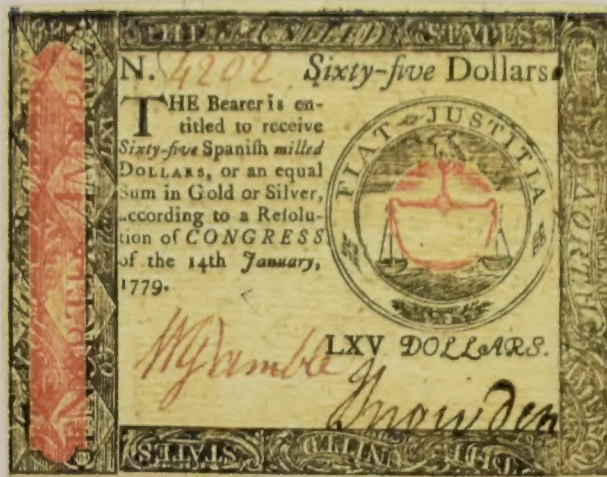 THE UNITED STATES
N. 4202 Sixty-five Dollars.
THE Bearer is en-
titled to receive
Sixty-five Spaniſh milled
DOLLARS, or an equal
Sum in Gold or Silver,
according to a Reſolu-
tion of CONGRESS
of the 14th January,
1779.
FIAT JUSTITIA
LXV DOLLARS.
Snowden
OF NORTH AMERICA
THE UNITED STATES